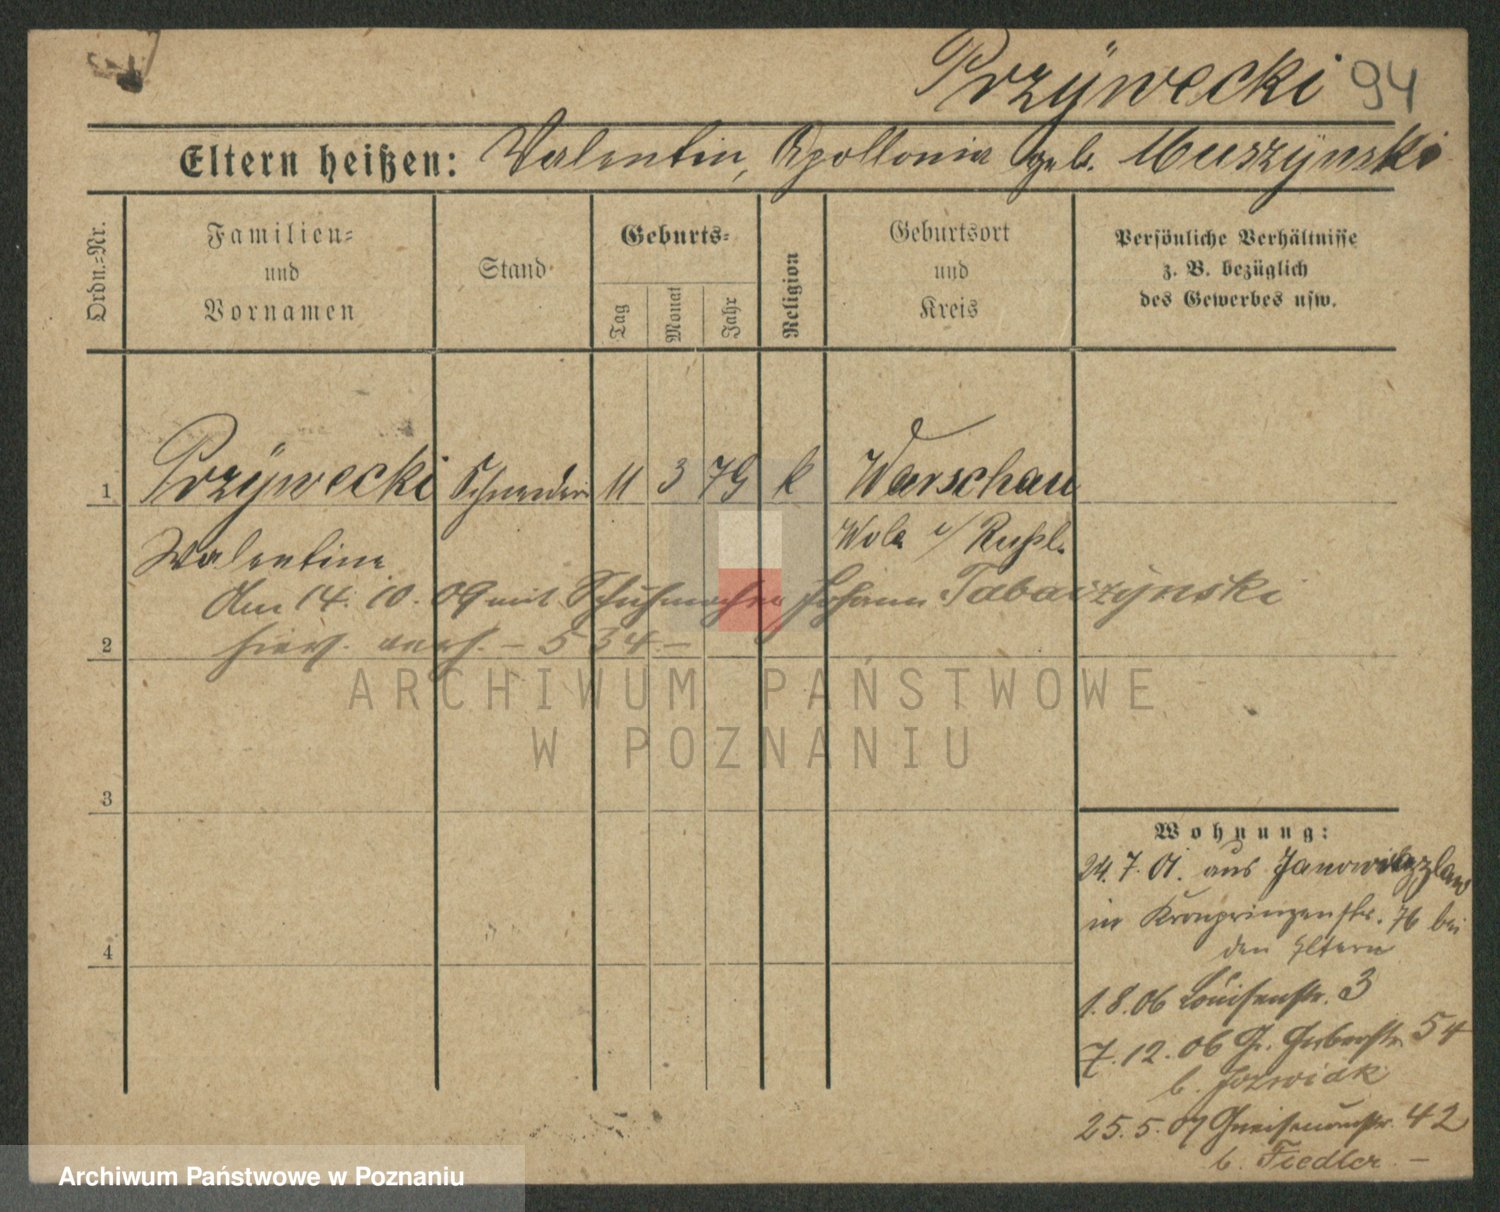 Przÿwecki 94
Eltern heißen: Valentin, Apollonia geb. Muszÿnski
Ordn.-Nr.
Familien- und Vornamen
Stand
Geburts-
Tag
Monat
Jahr
Religion
Geburtsort und Kreis
Persönliche Verhältnisse z. B. bezüglich des Gewerbes usw.
1 Przÿwecki Schneiderin 11 3 79 k Warschau
Valentine Wola i/ Rußl.
Am 14. 10. 09 mit Schuhmacher Johann Tabaczÿnski
2 hier verh. – 534 –
ARCHIWUM PAŃSTWOWE
W POZNANIU
3
Wohnung:
24. 7. 01. aus
in Kronprinzenstr. 76 bei
4 den Eltern
1. 8. 06 Louisenstr. 3
7. 12. 06 Gr. Gerberstr. 54
b. Jozwiak
25. 5. 07 Gneisenaustr. 42
b. Fiedler –
Archiwum Państwowe w Poznaniu